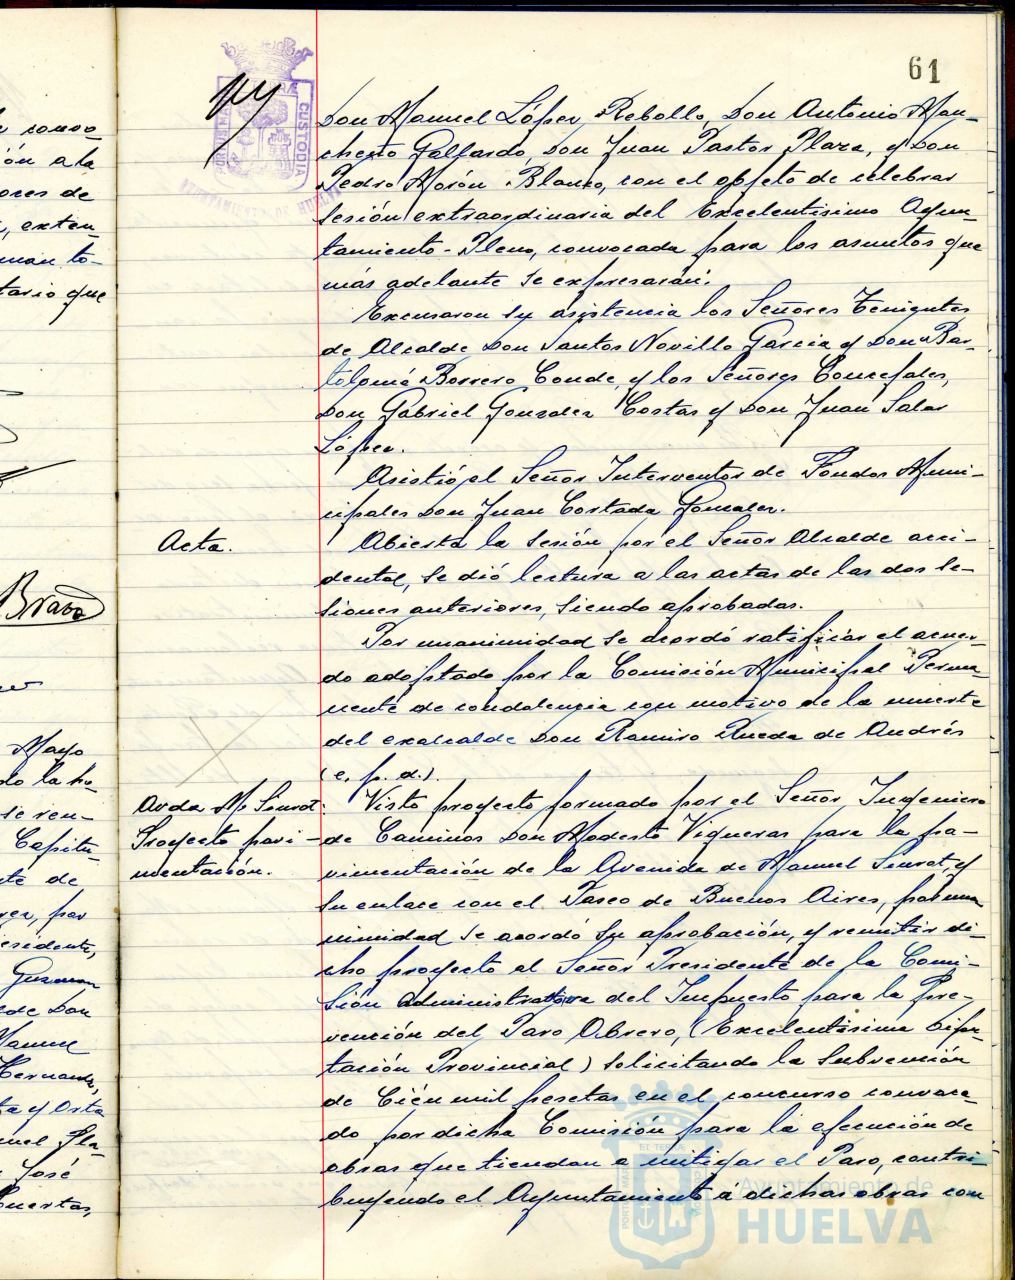 61
Don Manuel López Rebollo, Don Antonio Man-
cheño Gallardo, Don Juan Pastor Plaza, y Don
Pedro Morón Blanco, con el objeto de celebrar
sesión extraordinaria del Excelentísimo Ayun-
tamiento-Pleno, convocada para los asuntos que
más adelante se expresarán.
Excusaron su asistencia los Señores Tenientes
de Alcalde Don Santos Novillo García y Don Bar-
tolomé Borrero Conde, y los Señores Concejales,
Don Gabriel Gonzalez Costas y Don Juan Salas
López.
Asistió el Señor Interventor de Fondos Muni-
cipales Don Juan Cortada Gonzalez.
Acta.
Abierta la sesión por el Señor Alcalde acci-
dental, se dió lectura a las actas de las dos se-
siones anteriores, siendo aprobadas.
Por unanimidad se acordó ratificar el acuer-
do adoptado por la Comisión Municipal Perma-
nente de condolencia con motivo de la muerte
del exalcalde Don Ramiro Rueda de Andrés
(e. p. d.).
Avda M. Siurot:
Proyecto pavi-
mentación.
Visto proyecto formado por el Señor Ingeniero
de Caminos Don Modesto Vigueras para la pa-
vimentación de la Avenida de Manuel Siurot, y
su enlace con el Paseo de Buenos Aires, por una
nimidad se acordó su aprobación, y remitir di-
cho proyecto al Señor Presidente de la Comi-
sión administrativa del Impuesto para la Pre-
vención del Paro Obrero, (Excelentísima Dipu-
tación Provincial) solicitando la subvención
de Cién mil pesetas en el concurso convoca-
do por dicha Comisión para la ejecución de
obras que tiendan a mitigar el Paro, contri-
buyendo el Ayuntamiento á dichas obras con
CUSTODIA
AYUNTAMIENTO DE HUELVA
Ayuntamiento de
HUELVA
Bravo
Mayo
do la ho-
se reu-
Capitu-